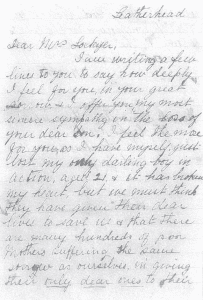 Leatherhead
Dear Mrs Lockyer,
I am writing a few
lines to you to say how deeply
I feel for you, in your great
so & offer you my most
sincere sympathy on the loss of
your dear son, I feel the more
for you, as I have myself just
lost my only darling boy in
action, aged 21 & it has broken
my heart but we must think
they have given their dear
lives to save us & that there
are many hundreds of poor
mothers suffering the same
sorrow as ourselves, in giving
their only dear ones to their